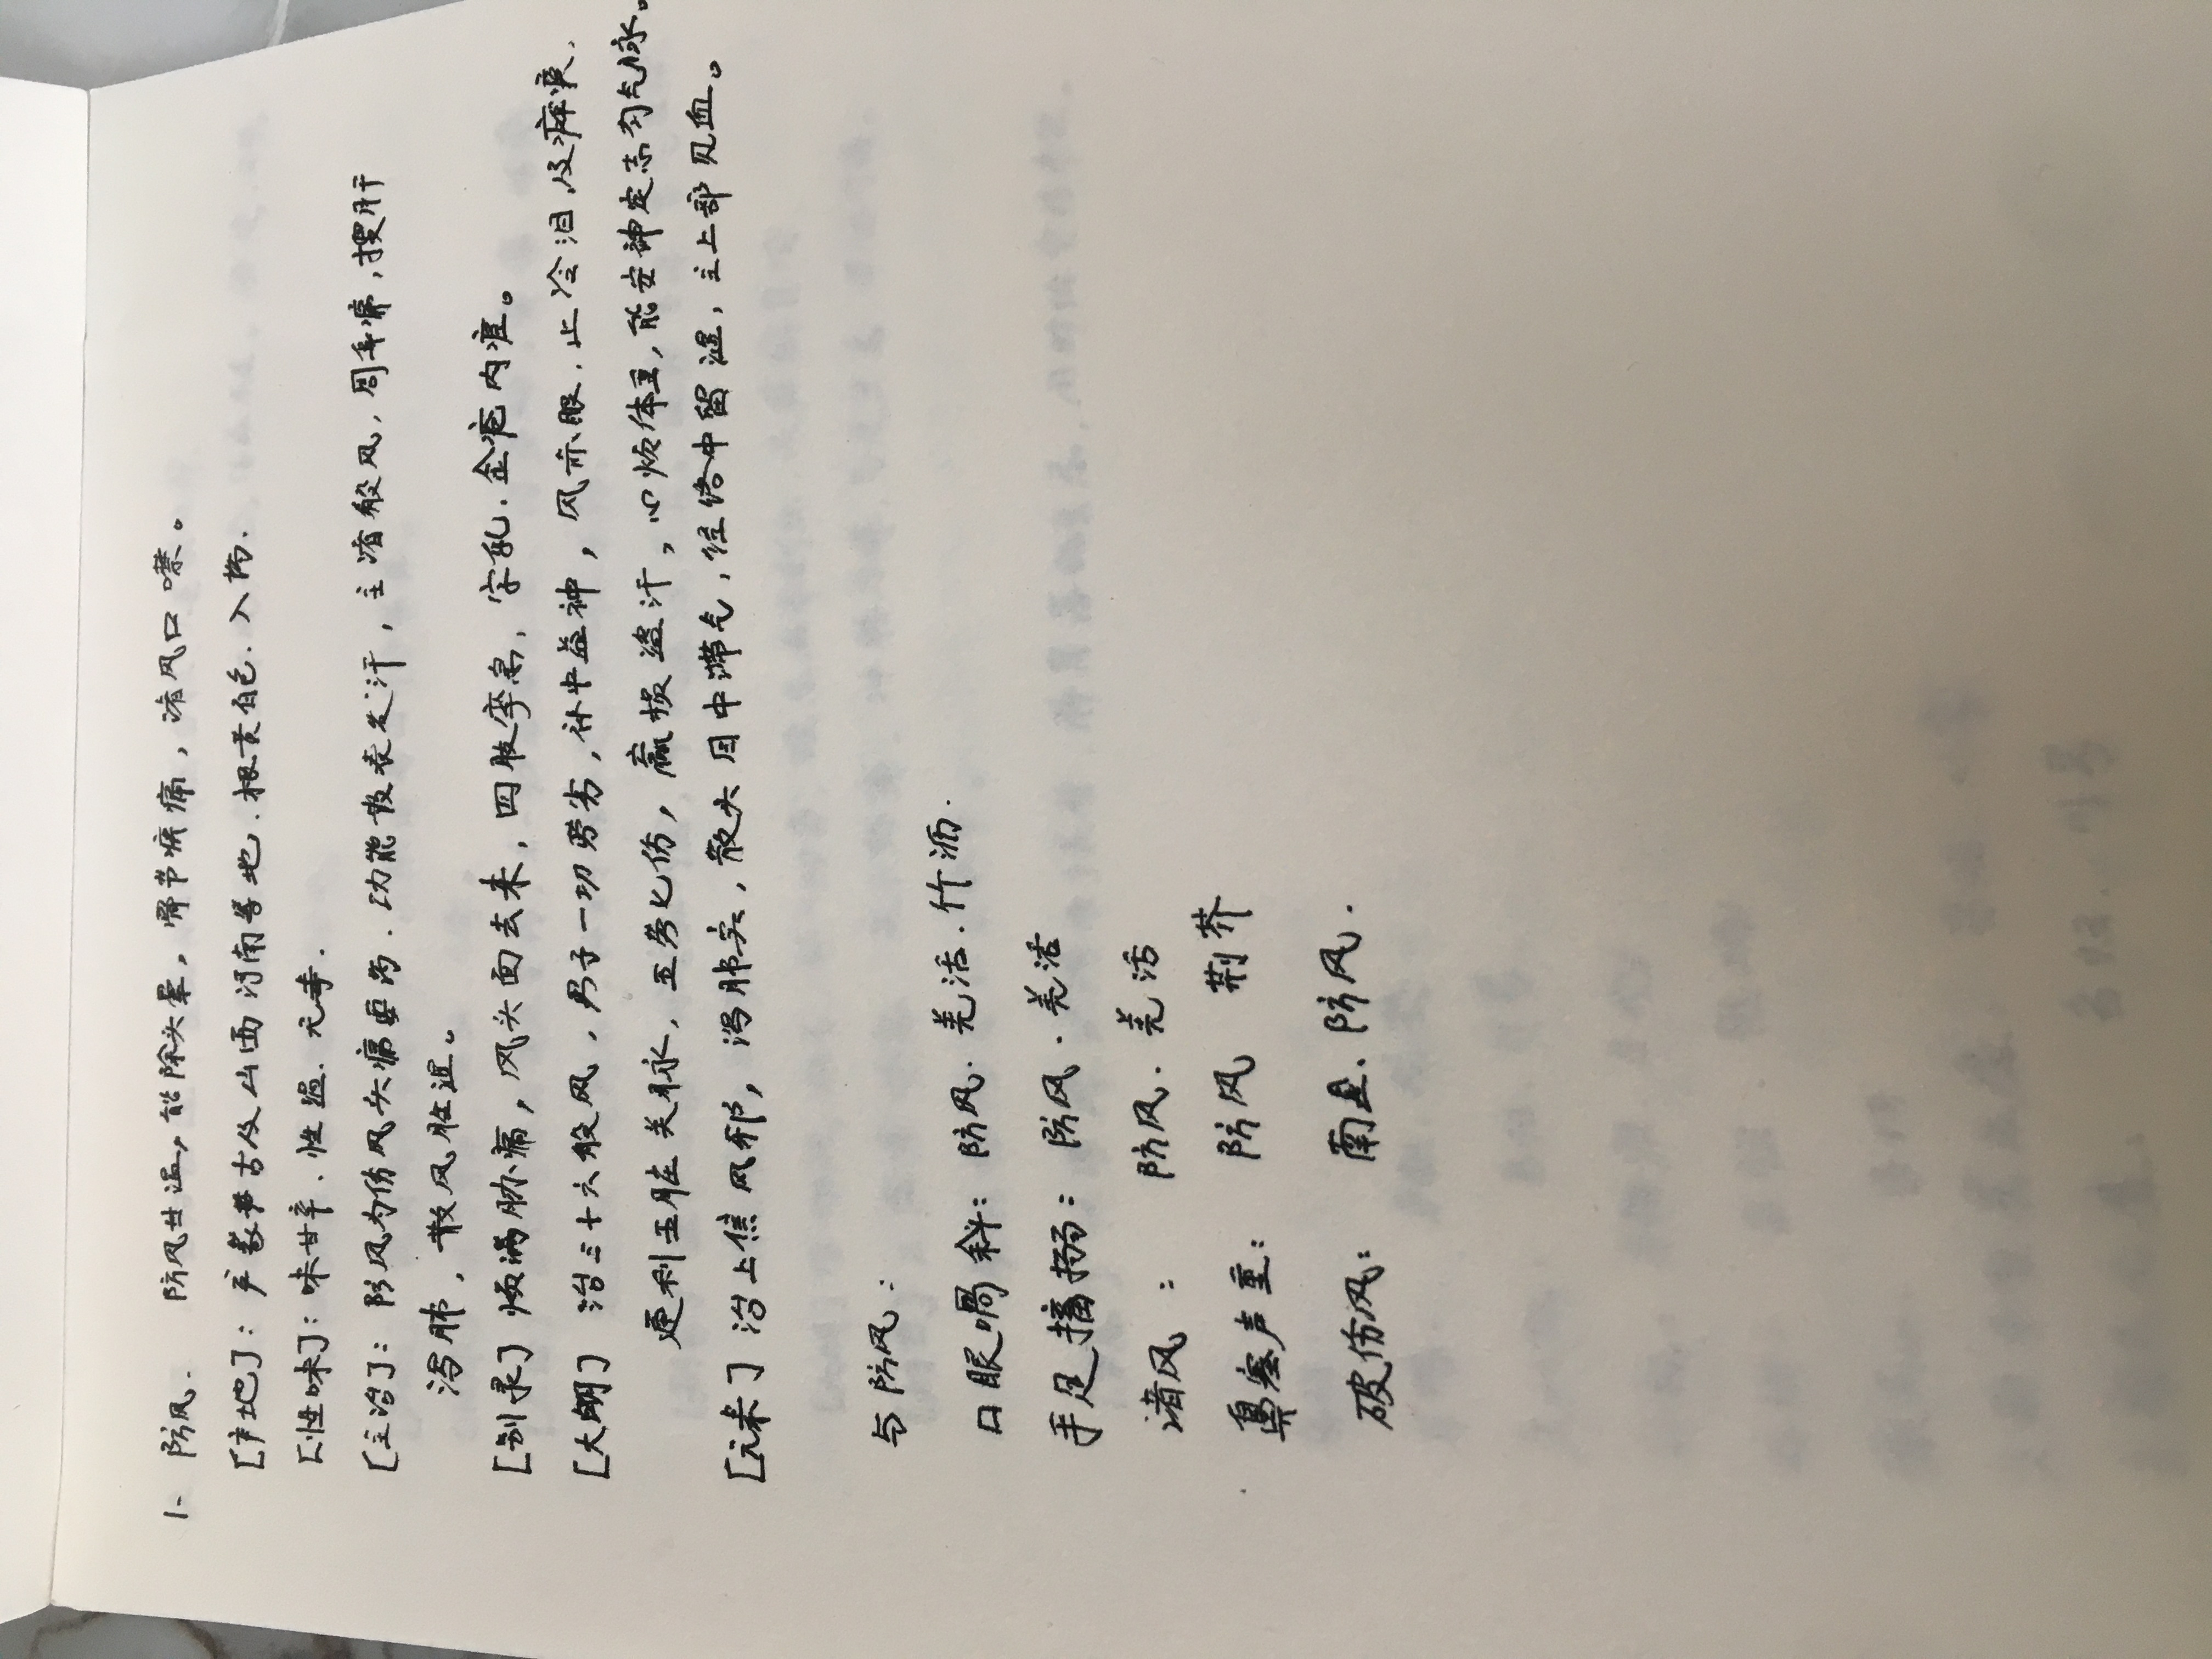 1. 防风. 防风甘温,能除头晕,骨节痹痛,诸风口噤。
[产地]:产蒙古及山西河南等地.根黄白色.入药.
[性味]:味甘辛、性温.无毒.
[主治]:防风为伤风头痛要药.功能散表发汗,主诸般风,周身痛,搜肝
泻肺,散风胜湿。
[别录]烦满胁痛,风头面去来,四肢挛急,字乳.金疮内痉。
[大明]治三十六般风,男子一切劳劣,补中益神,风赤眼.止冷泪及瘫痪.
通利五脏关脉,五劳七伤,羸损盗汗,心烦体重,能安神定志匀气脉。
[元素]治上焦风邪,泻肺实,散头目中滞气,经络中留湿,主上部见血。
与防风:
口眼喎斜:防风.羌活.竹沥.
手足搐搦:防风.羌活
诸风: 防风.羌活
鼻塞声重: 防风 荆芥
破伤风: 南星、防风.